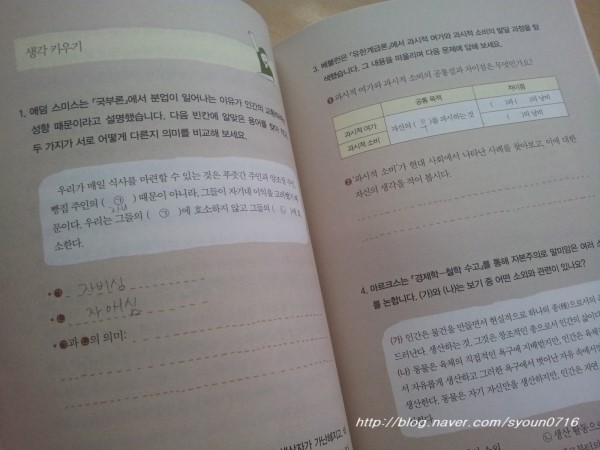 생각 키우기
1. 애덤 스미스는 『국부론』에서 분업이 일어나는 이유가 인간의
성향 때문이라고 설명했습니다. 다음 빈칸에 알맞은 용어를 찾아
두 가지가 서로 어떻게 다른지 의미를 비교해 보세요.
우리가 매일 식사를 마련할 수 있는 것은 푸줏간 주인과 양조장 주인,
빵집 주인의 ( ㉠ ) 때문이 아니라, 그들이 자기네 이익을 고려했기 때
문이다. 우리는 그들의 ( ㉠ )에 호소하지 않고 그들의 ( ㉡ )에 호
소한다.
㉠ 자비심
㉡ 자애심
㉠과 ㉡의 의미:
3. 베블런은 『유한계급론』에서 과시적 여가와 과시적 소비의 발달 과정을 탐
색했습니다. 그 내용을 떠올리며 다음 문제에 답해 보세요.
❶ 과시적 여가와 과시적 소비의 공통점과 차이점은 무엇인가요?
공통 목적 차이점
과시적 여가 ( )과 ( )의 낭비
자신의 ( )를 과시하는 것
과시적 소비 ( )의 낭비
❷ '과시적 소비'가 현대 사회에서 나타난 사례를 찾아보고, 이에 대한
자신의 생각을 적어 봅시다.
4. 마르크스는 『경제학-철학 수고』를 통해 자본주의로 말미암은 여러 소
를 논합니다. (가)와 (나)는 보기 중 어떤 소외와 관련이 있나요?
(가) 인간은 물건을 만들면서 현실적으로 하나의 종(種)으로서의
드러난다. 생산하는 것, 그것은 창조적인 종으로서 인간의 삶이다
(나) 동물은 육체의 직접적인 욕구에 지배받지만, 인간은 육체
서 자유롭게 생산하고 그러한 욕구에서 벗어난 자유 속에서
생산한다. 동물은 자기 자신만을 생산하지만, 인간은 자연
한다.
㉡ 생산 활동으로
http://blog.naver.com/syoun0716